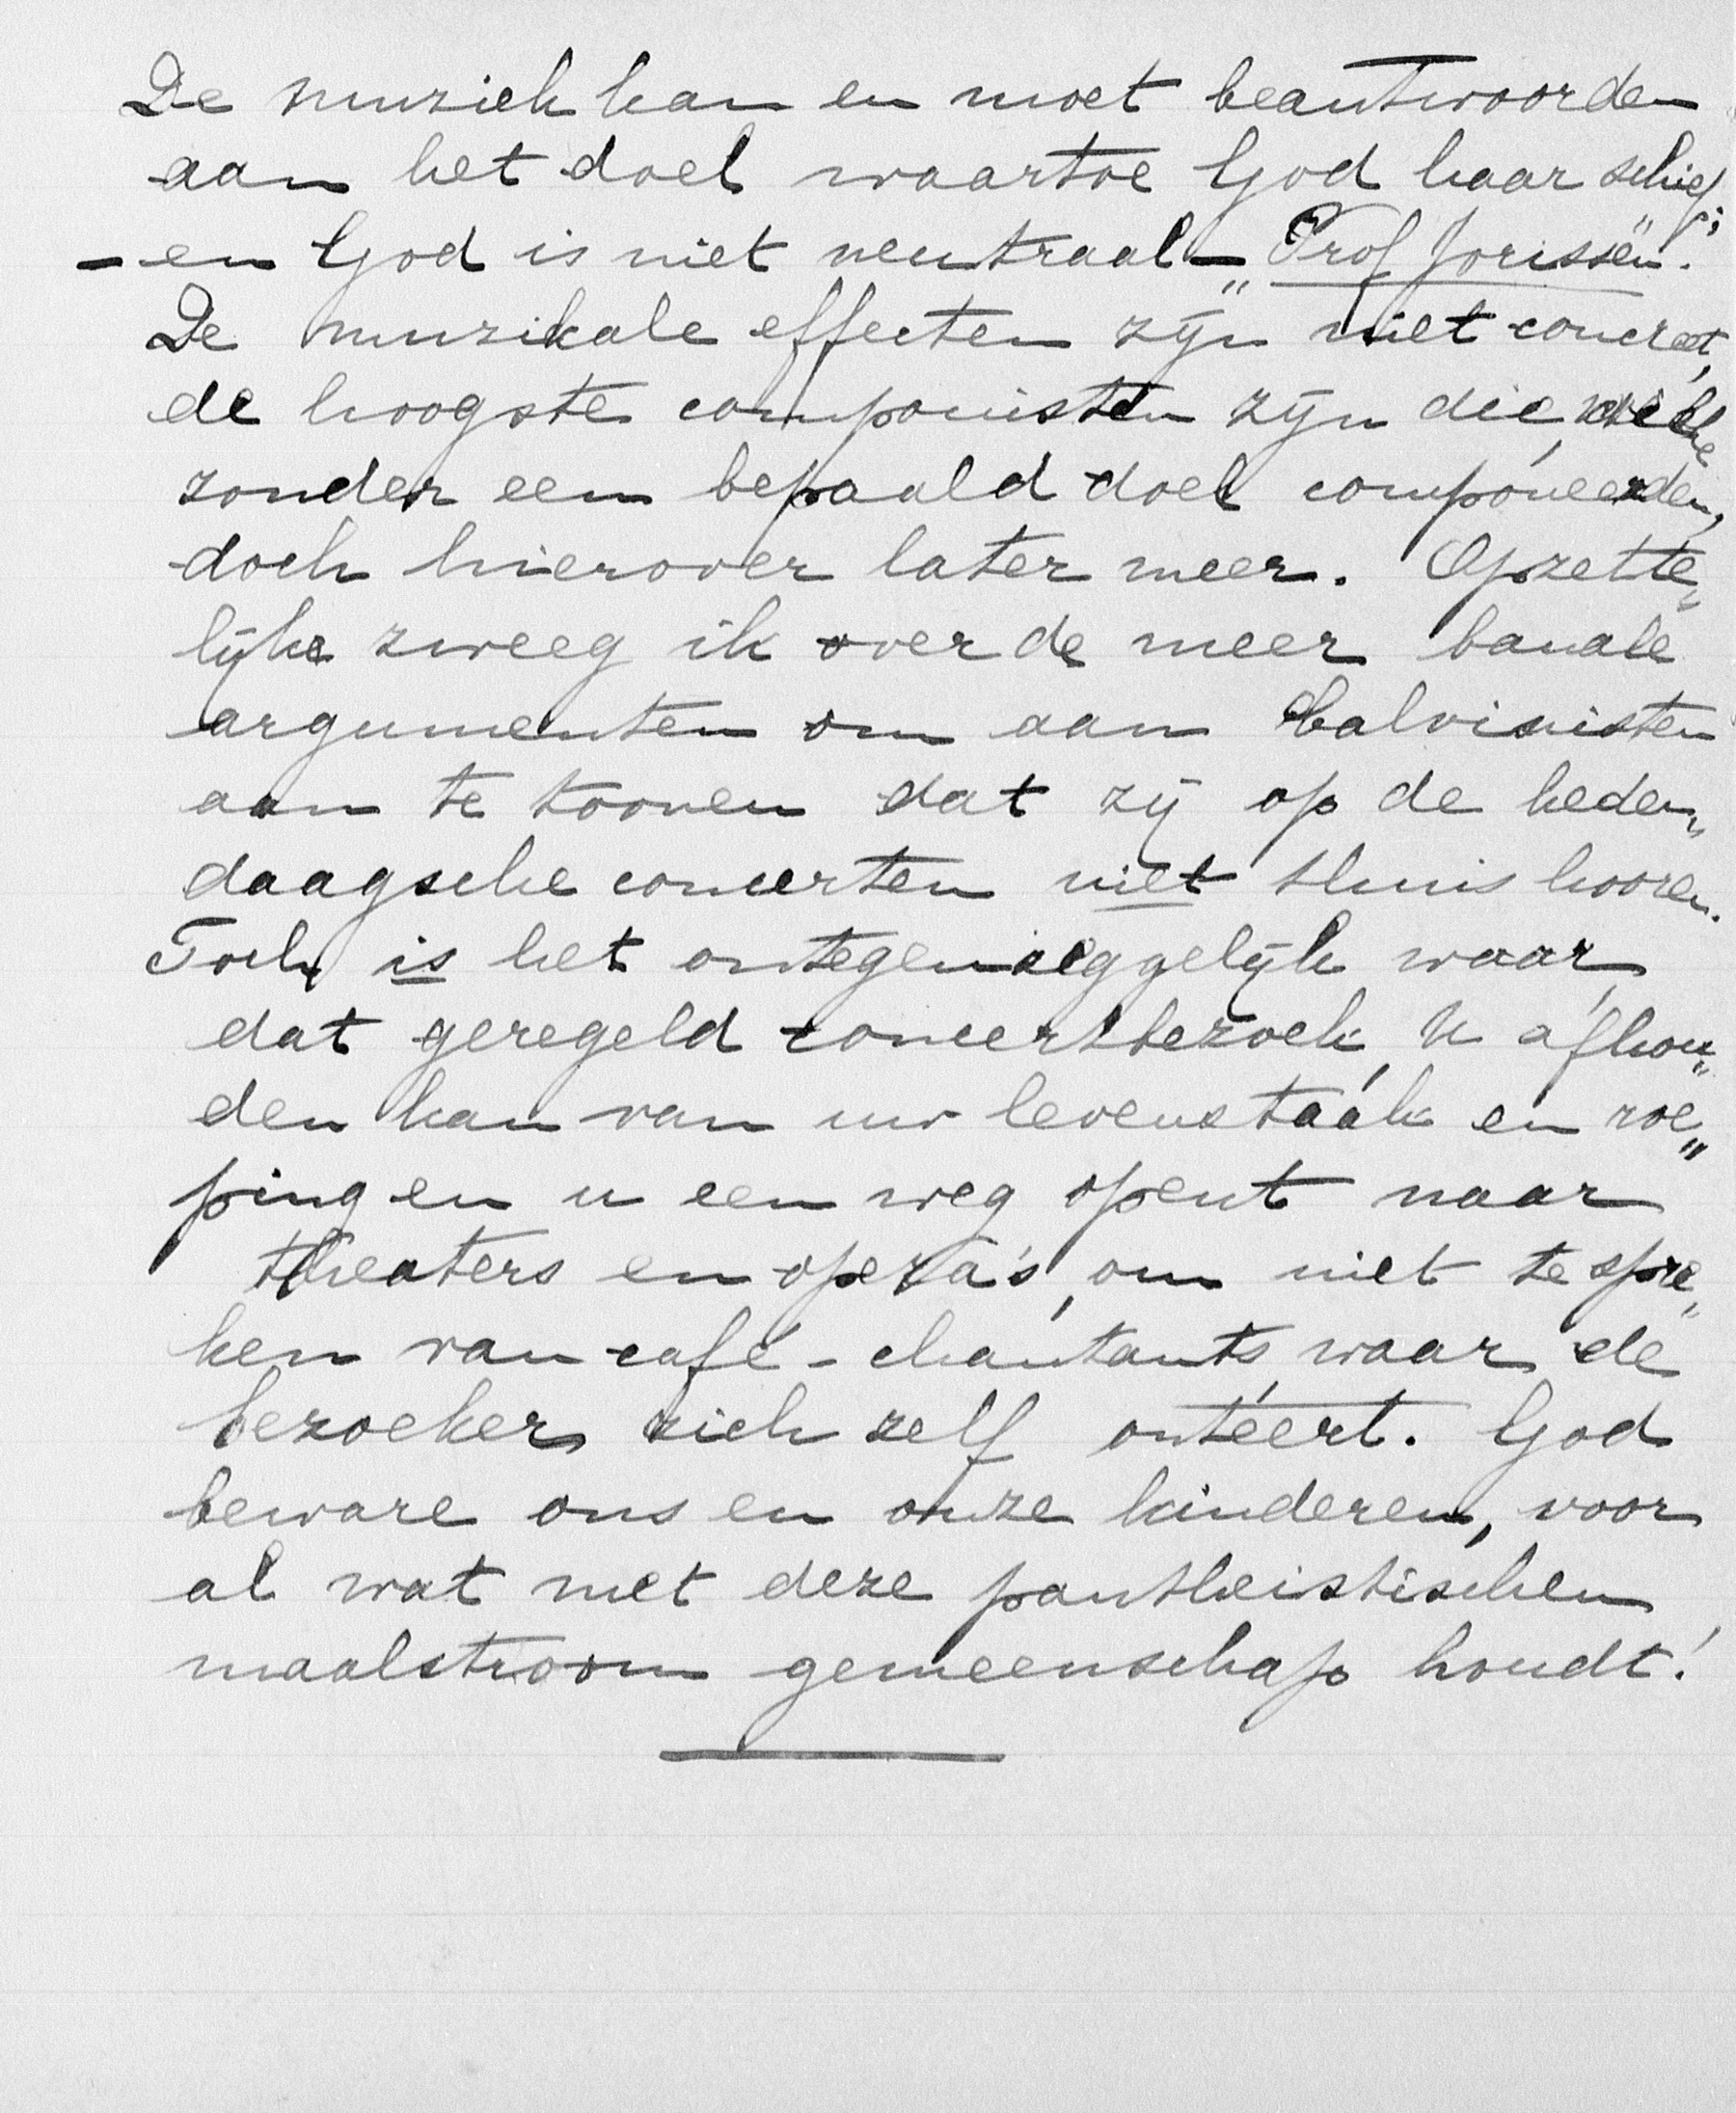 De muziek kan en moet beantwoorden
aan het doel waartoe God haar schiep;
- en God is niet neutraal - „Prof Jorissen".
De muzikale effecten zijn niet concreet,
de hoogste componisten zijn die, welke
zonder een bepaald doel componeerden,
doch hierover later meer. Opzette„
lijke zweeg ik over de meer banale
argumenten om aan Calvinisten
aan te toonen dat zij op de heden„
daagsche concerten niet thuis hooren.
Toch is het ontegenzeggelijk waar,
dat geregeld concertbezoek, U afhou„
den kan van uw levenstaak en roe„
ping en u een weg opent naar
theaters en opera's, om niet te spre„
ken van café-chantants, waar de
bezoeker zich zelf onteert. God
beware ons en onze kinderen, voor
al wat met deze pantheistischen
maalstroom gemeenschap houdt!